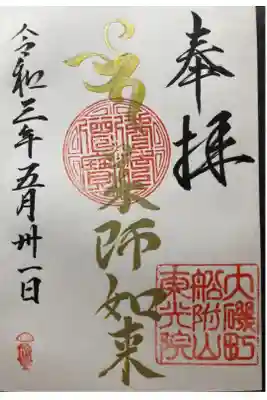 奉拝
薬師如来
令和三年五月卅一日
大磯町
船附山
東光院